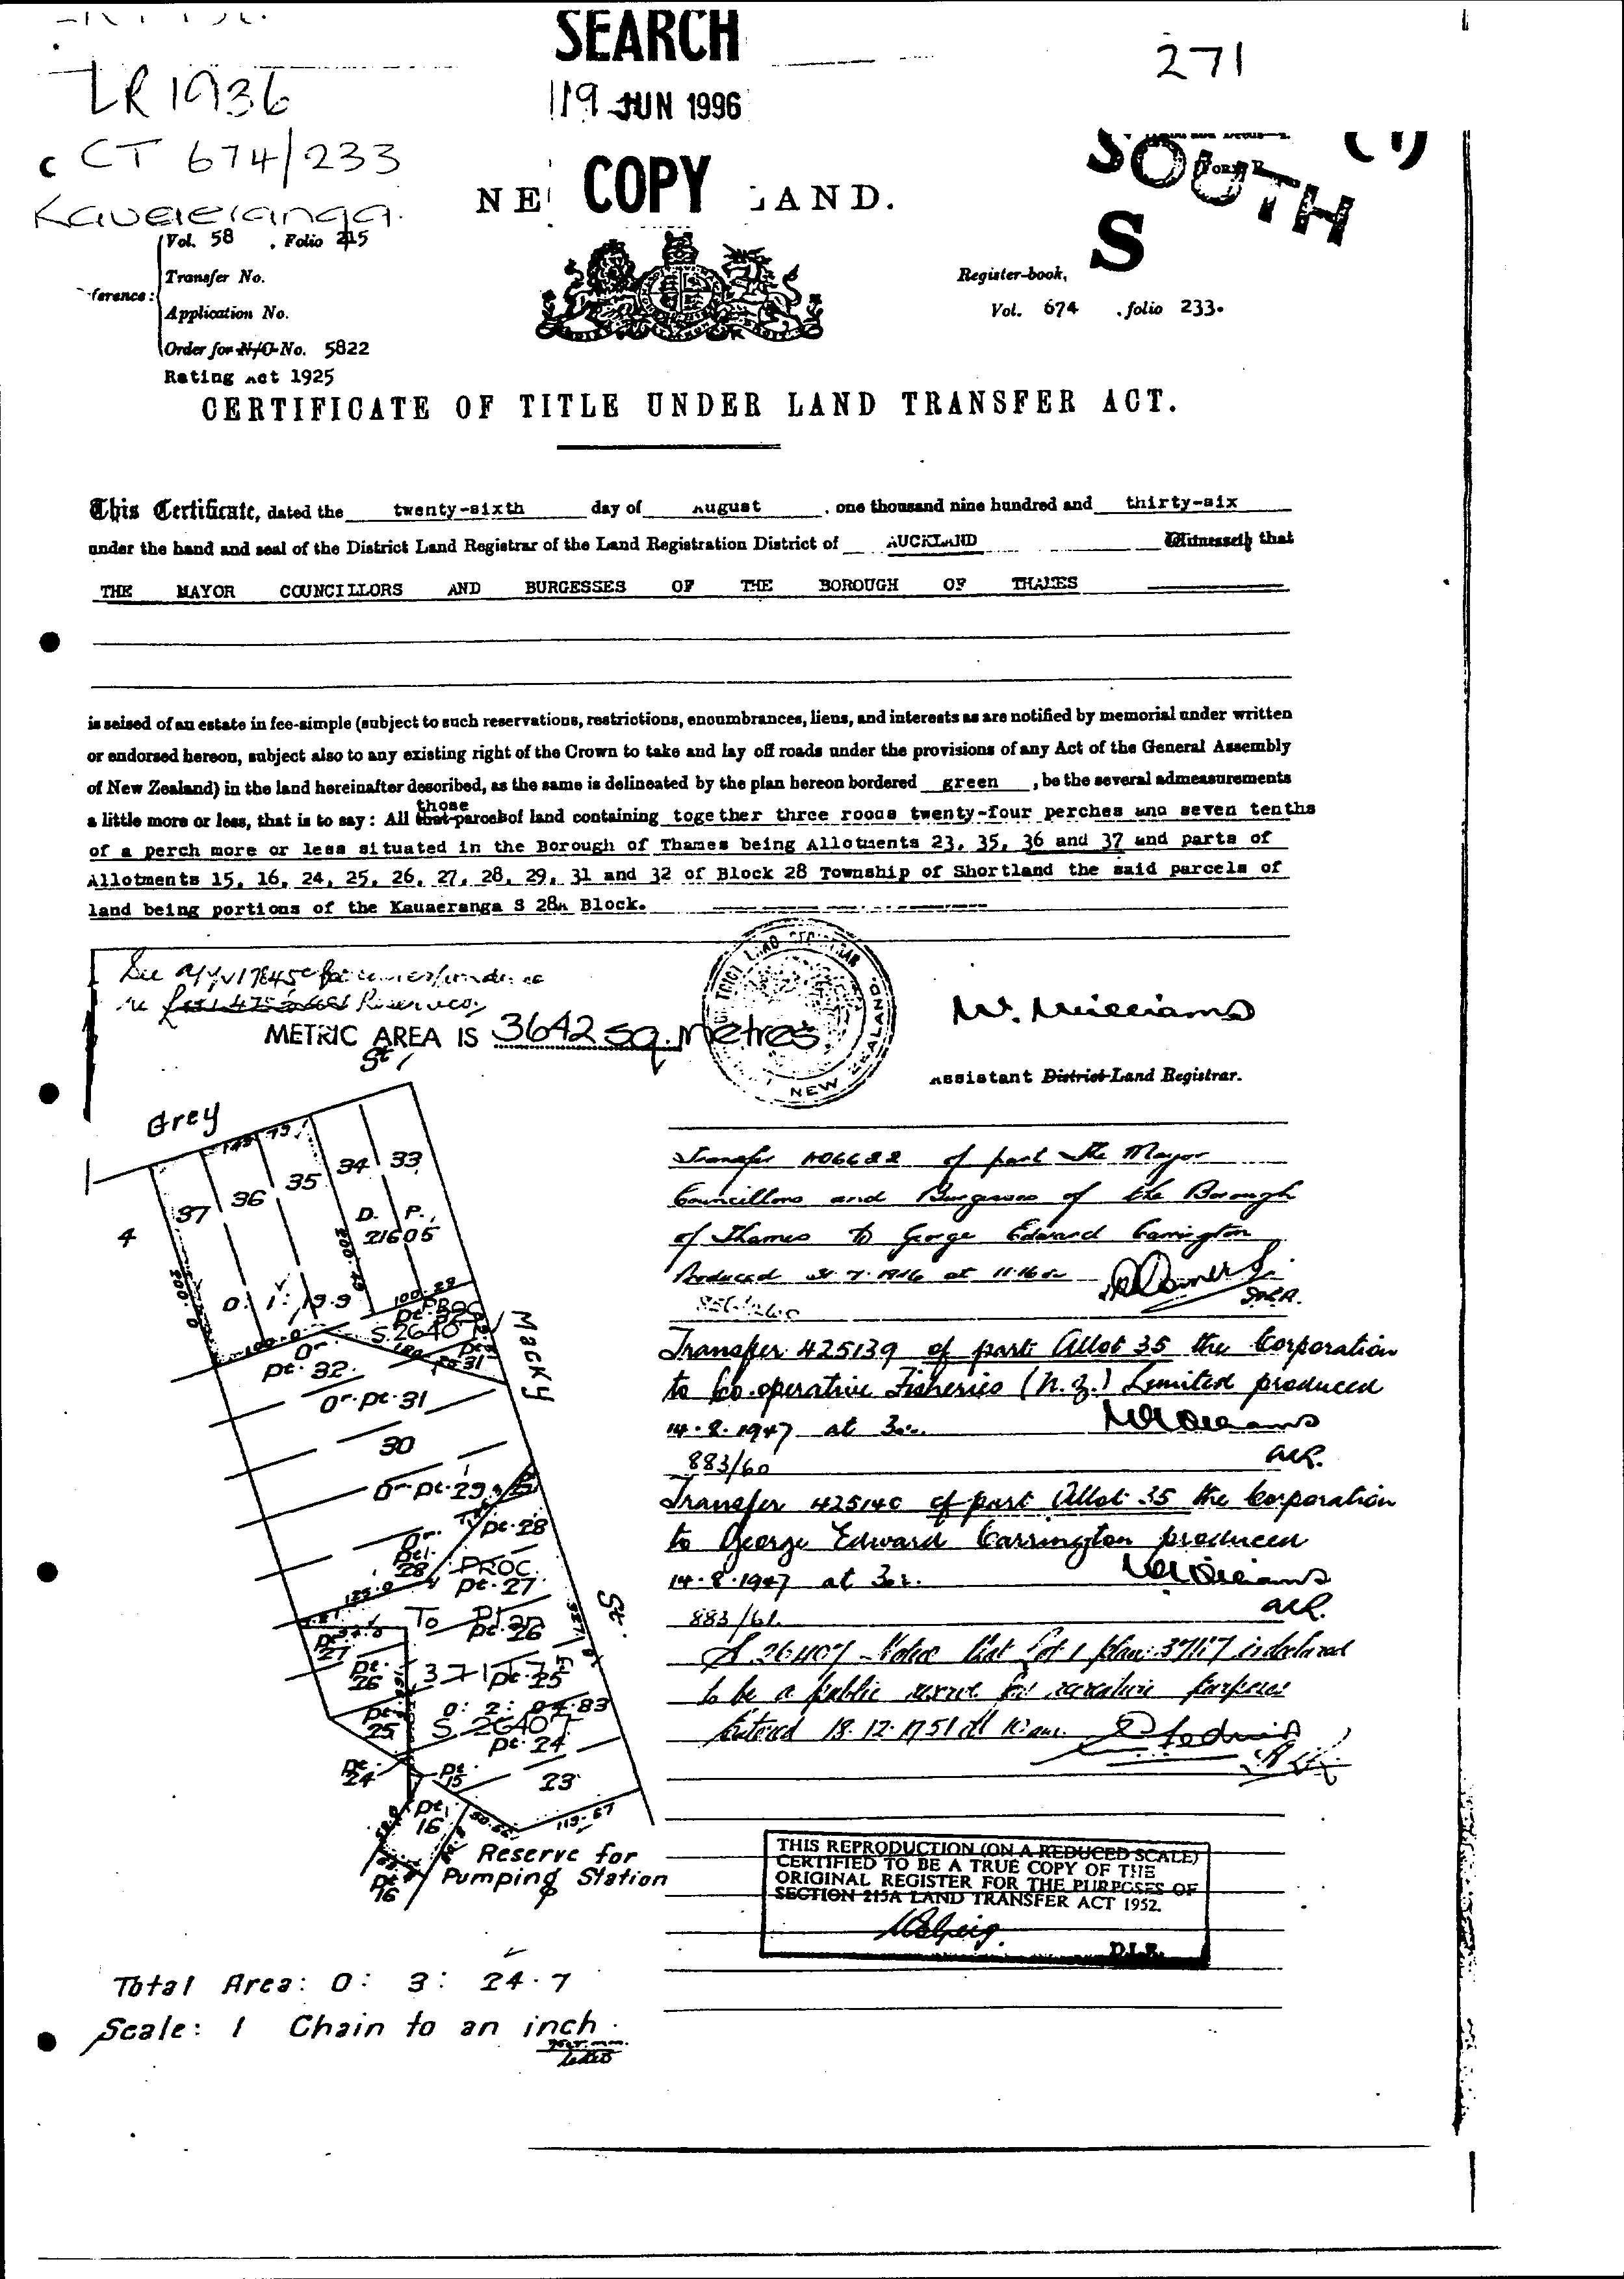 SEARCH
271
LR 1936
19 JUN 1996
c CT 674/233
COPY
SOUTH
(1)
Kauaeranga.
NE AND.
S
Vol. 58 , Folio 215
Transfer No.
Register-book,
ference:
Application No.
Vol. 674 , folio 233.
Order for N/C No. 5822
Rating Act 1925
CERTIFICATE OF TITLE UNDER LAND TRANSFER ACT.
This Certificate, dated the twenty-sixth day of August , one thousand nine hundred and thirty-six
under the hand and seal of the District Land Registrar of the Land Registration District of AUCKLAND Witnesseth that
THE MAYOR COUNCILLORS AND BURGESSES OF THE BOROUGH OF THAMES
is seised of an estate in fee-simple (subject to such reservations, restrictions, encumbrances, liens, and interests as are notified by memorial under written
or endorsed hereon, subject also to any existing right of the Crown to take and lay off roads under the provisions of any Act of the General Assembly
of New Zealand) in the land hereinafter described, as the same is delineated by the plan hereon bordered green , be the several admeasurements
those
a little more or less, that is to say: All that parcel of land containing together three roods twenty-four perches and seven tenths
of a perch more or less situated in the Borough of Thames being Allotments 23, 35, 36 and 37 and parts of
Allotments 15, 16, 24, 25, 26, 27, 28, 29, 31 and 32 of Block 28 Township of Shortland the said parcels of
land being portions of the Kauaeranga S 28A Block.
See
re Reserves
METRIC AREA IS 3642 sq. metres
NEW ZEALAND
W. Williams
Assistant District Land Registrar.
St.
Grey
4
37
36
35
34
33
D. P.
21605
200.0
0: 1: 19.9
100.29
100.0
PROC
S.26407
pt. 32
pt. 31
Macky
St.
0-pt. 31
30
0-pt. 29
pt. 28
PROC.
pt. 27
To
pt. 26
37117
pt. 25
0: 2: 04.83
S. 26407
pt. 24
23
pt. 27
pt. 26
pt. 25
pt. 24
pt. 15
pt. 16
pt. 16
50.66
113.67
Reserve for
Pumping Station
Total Area: 0: 3: 24.7
Scale: 1 Chain to an inch.
Transfer 406622 of part The Mayor
Councillors and Burgesses of the Borough
of Thames to George Edward Carrington
Produced 31.7.1946 at 11.16
Transfer 425139 of part Allot 35 the Corporation
to Co.operative Fisheries (N.Z.) Limited produced
14.8.1947 at 3
883/60
ALR.
Transfer 425140 of part Allot 35 the Corporation
to George Edward Carrington produced
14.8.1947 at 3
883/61.
ALR.
S 26407 Notice that Lot 1 plan 37117 is declared
to be a public reserve for recreation purposes
Entered 18.12.1951 at 10 am.
THIS REPRODUCTION (ON A REDUCED SCALE)
CERTIFIED TO BE A TRUE COPY OF THE
ORIGINAL REGISTER FOR THE PURPOSES OF
SECTION 215A LAND TRANSFER ACT 1952.
D.L.R.